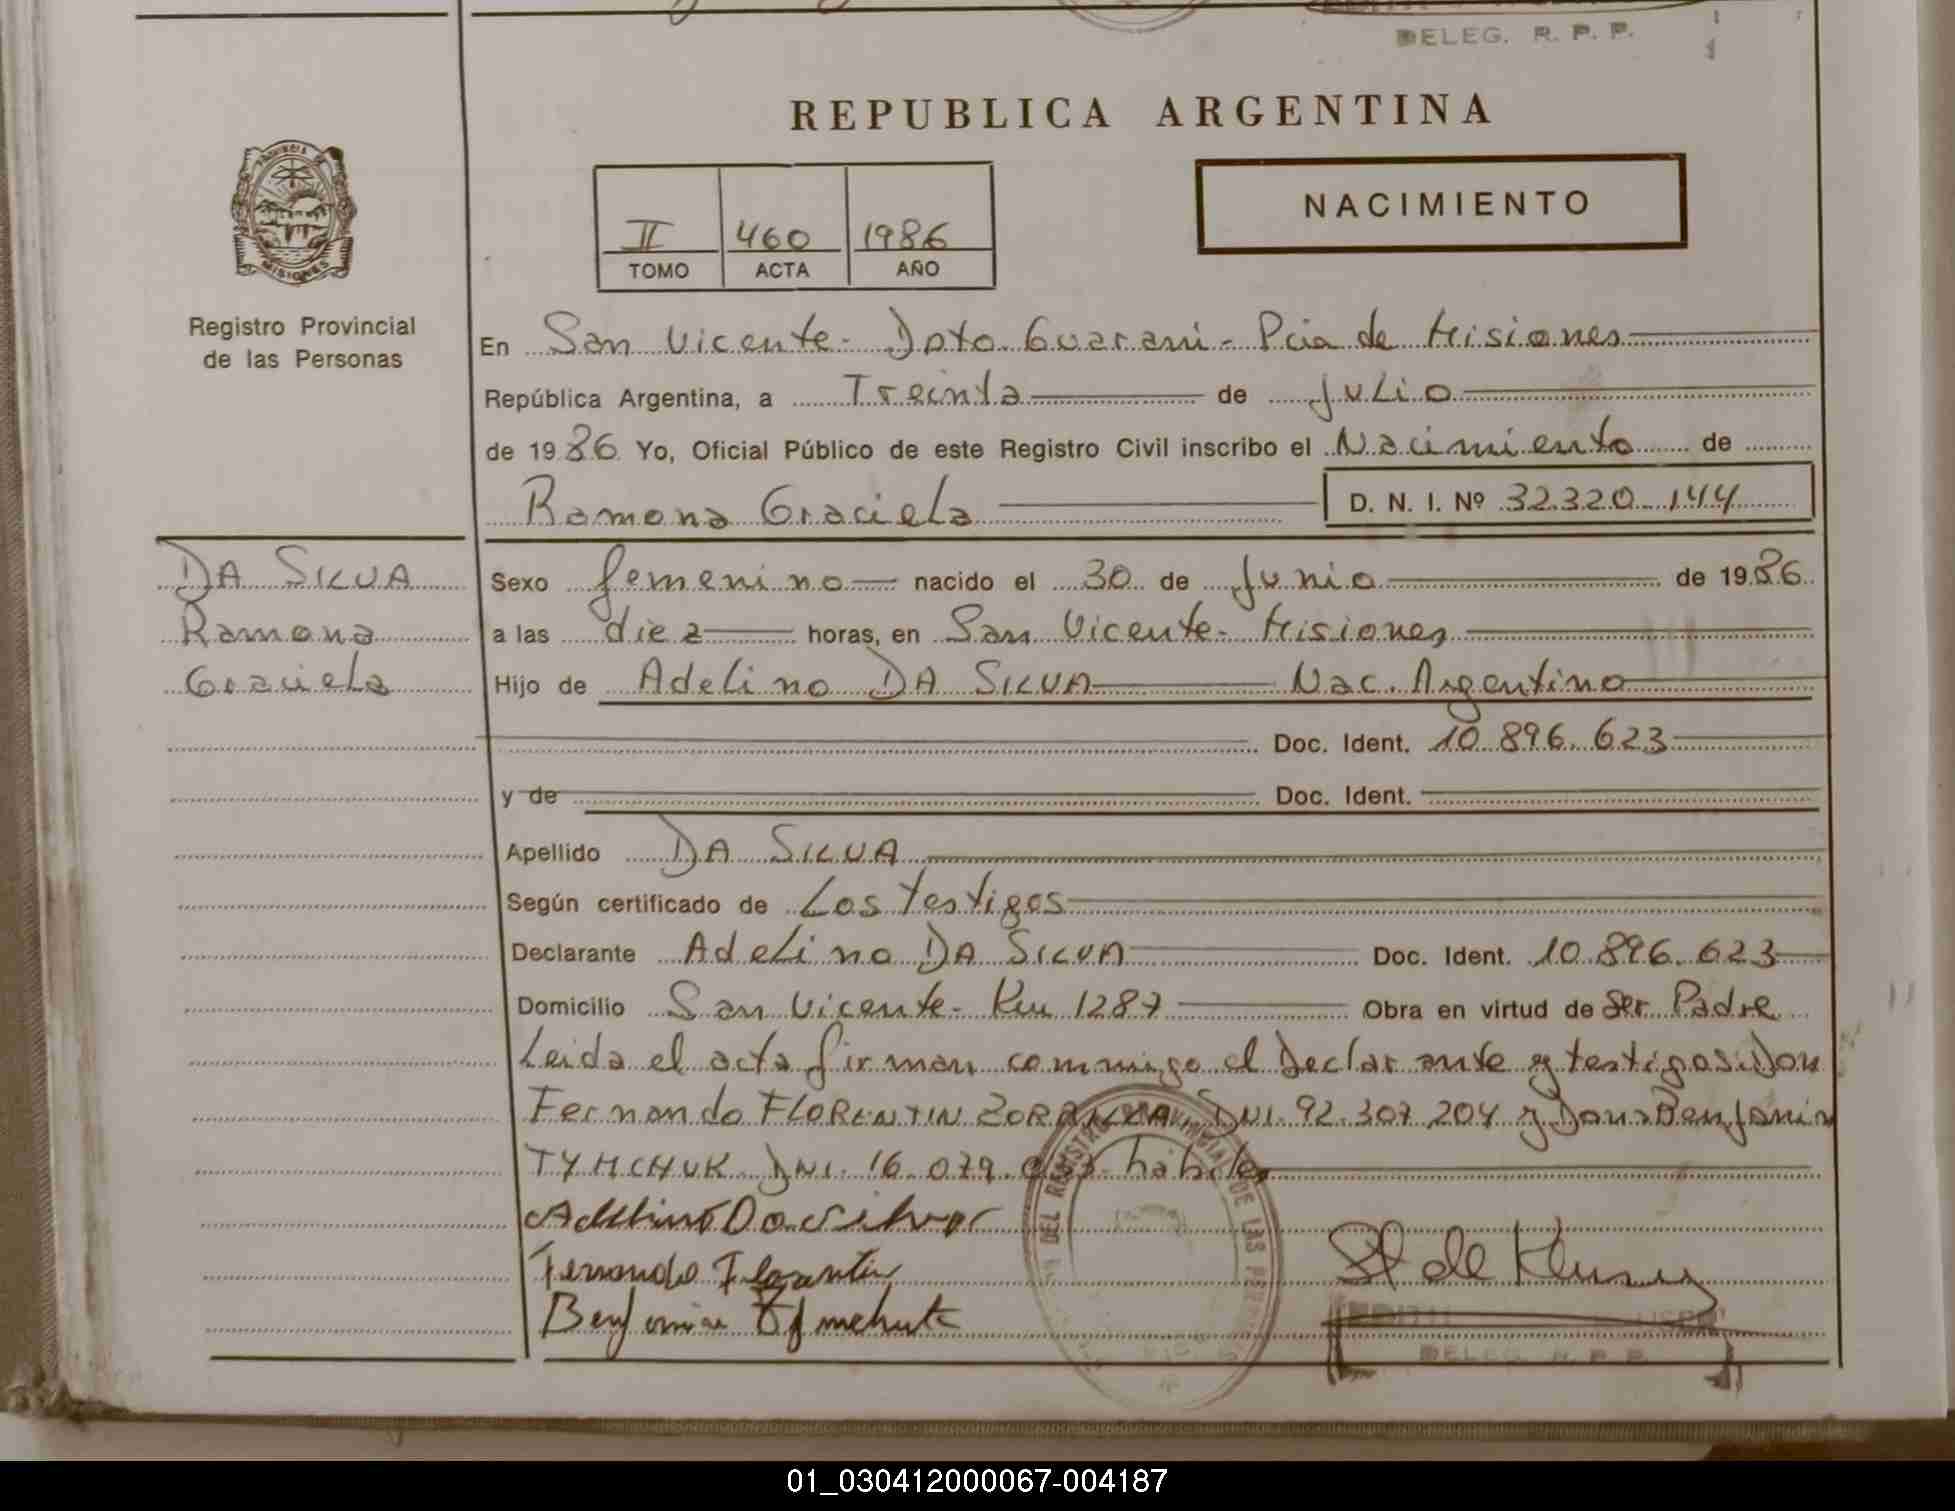 DELEG. R. P. P.
REPUBLICA ARGENTINA
PROVINCIA DE
MISIONES
NACIMIENTO
II 460 1986
TOMO ACTA AÑO
Registro Provincial
de las Personas
En San Vicente - Dpto Guarani - Pcia de Misiones
República Argentina, a Treinta de Julio
de 1986 Yo, Oficial Público de este Registro Civil inscribo el Nacimiento de
Ramona Graciela D. N. I. Nº 32.320.144
DA SILVA
Ramona
Graciela
Sexo femenino nacido el 30 de Junio de 1986
a las diez horas, en San Vicente - Misiones
Hijo de Adelino DA SILVA Nac. Argentino
Doc. Ident. 10.896.623
y de Doc. Ident.
Apellido DA SILVA
Según certificado de Los Testigos
Declarante Adelino DA SILVA Doc. Ident. 10.896.623
Domicilio San Vicente - Km 1287 Obra en virtud de Ser Padre
Leida el acta firman conmigo el Declarante y testigos: Don
Fernando FLORENTIN DNI. 92.307.204 y Don Benjamin
TYMCHUK DNI. 16.079. habiles
Adelino Da Silva
Fernando Florentin
Benjamin Tymchuk
DEL REGISTRO PROVINCIAL DE LAS
EDITH
DELEG. R. P. P.
01_030412000067-004187